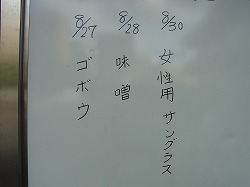 8/30
女性用サングラス
8/28
味噌
8/27
ゴボウ